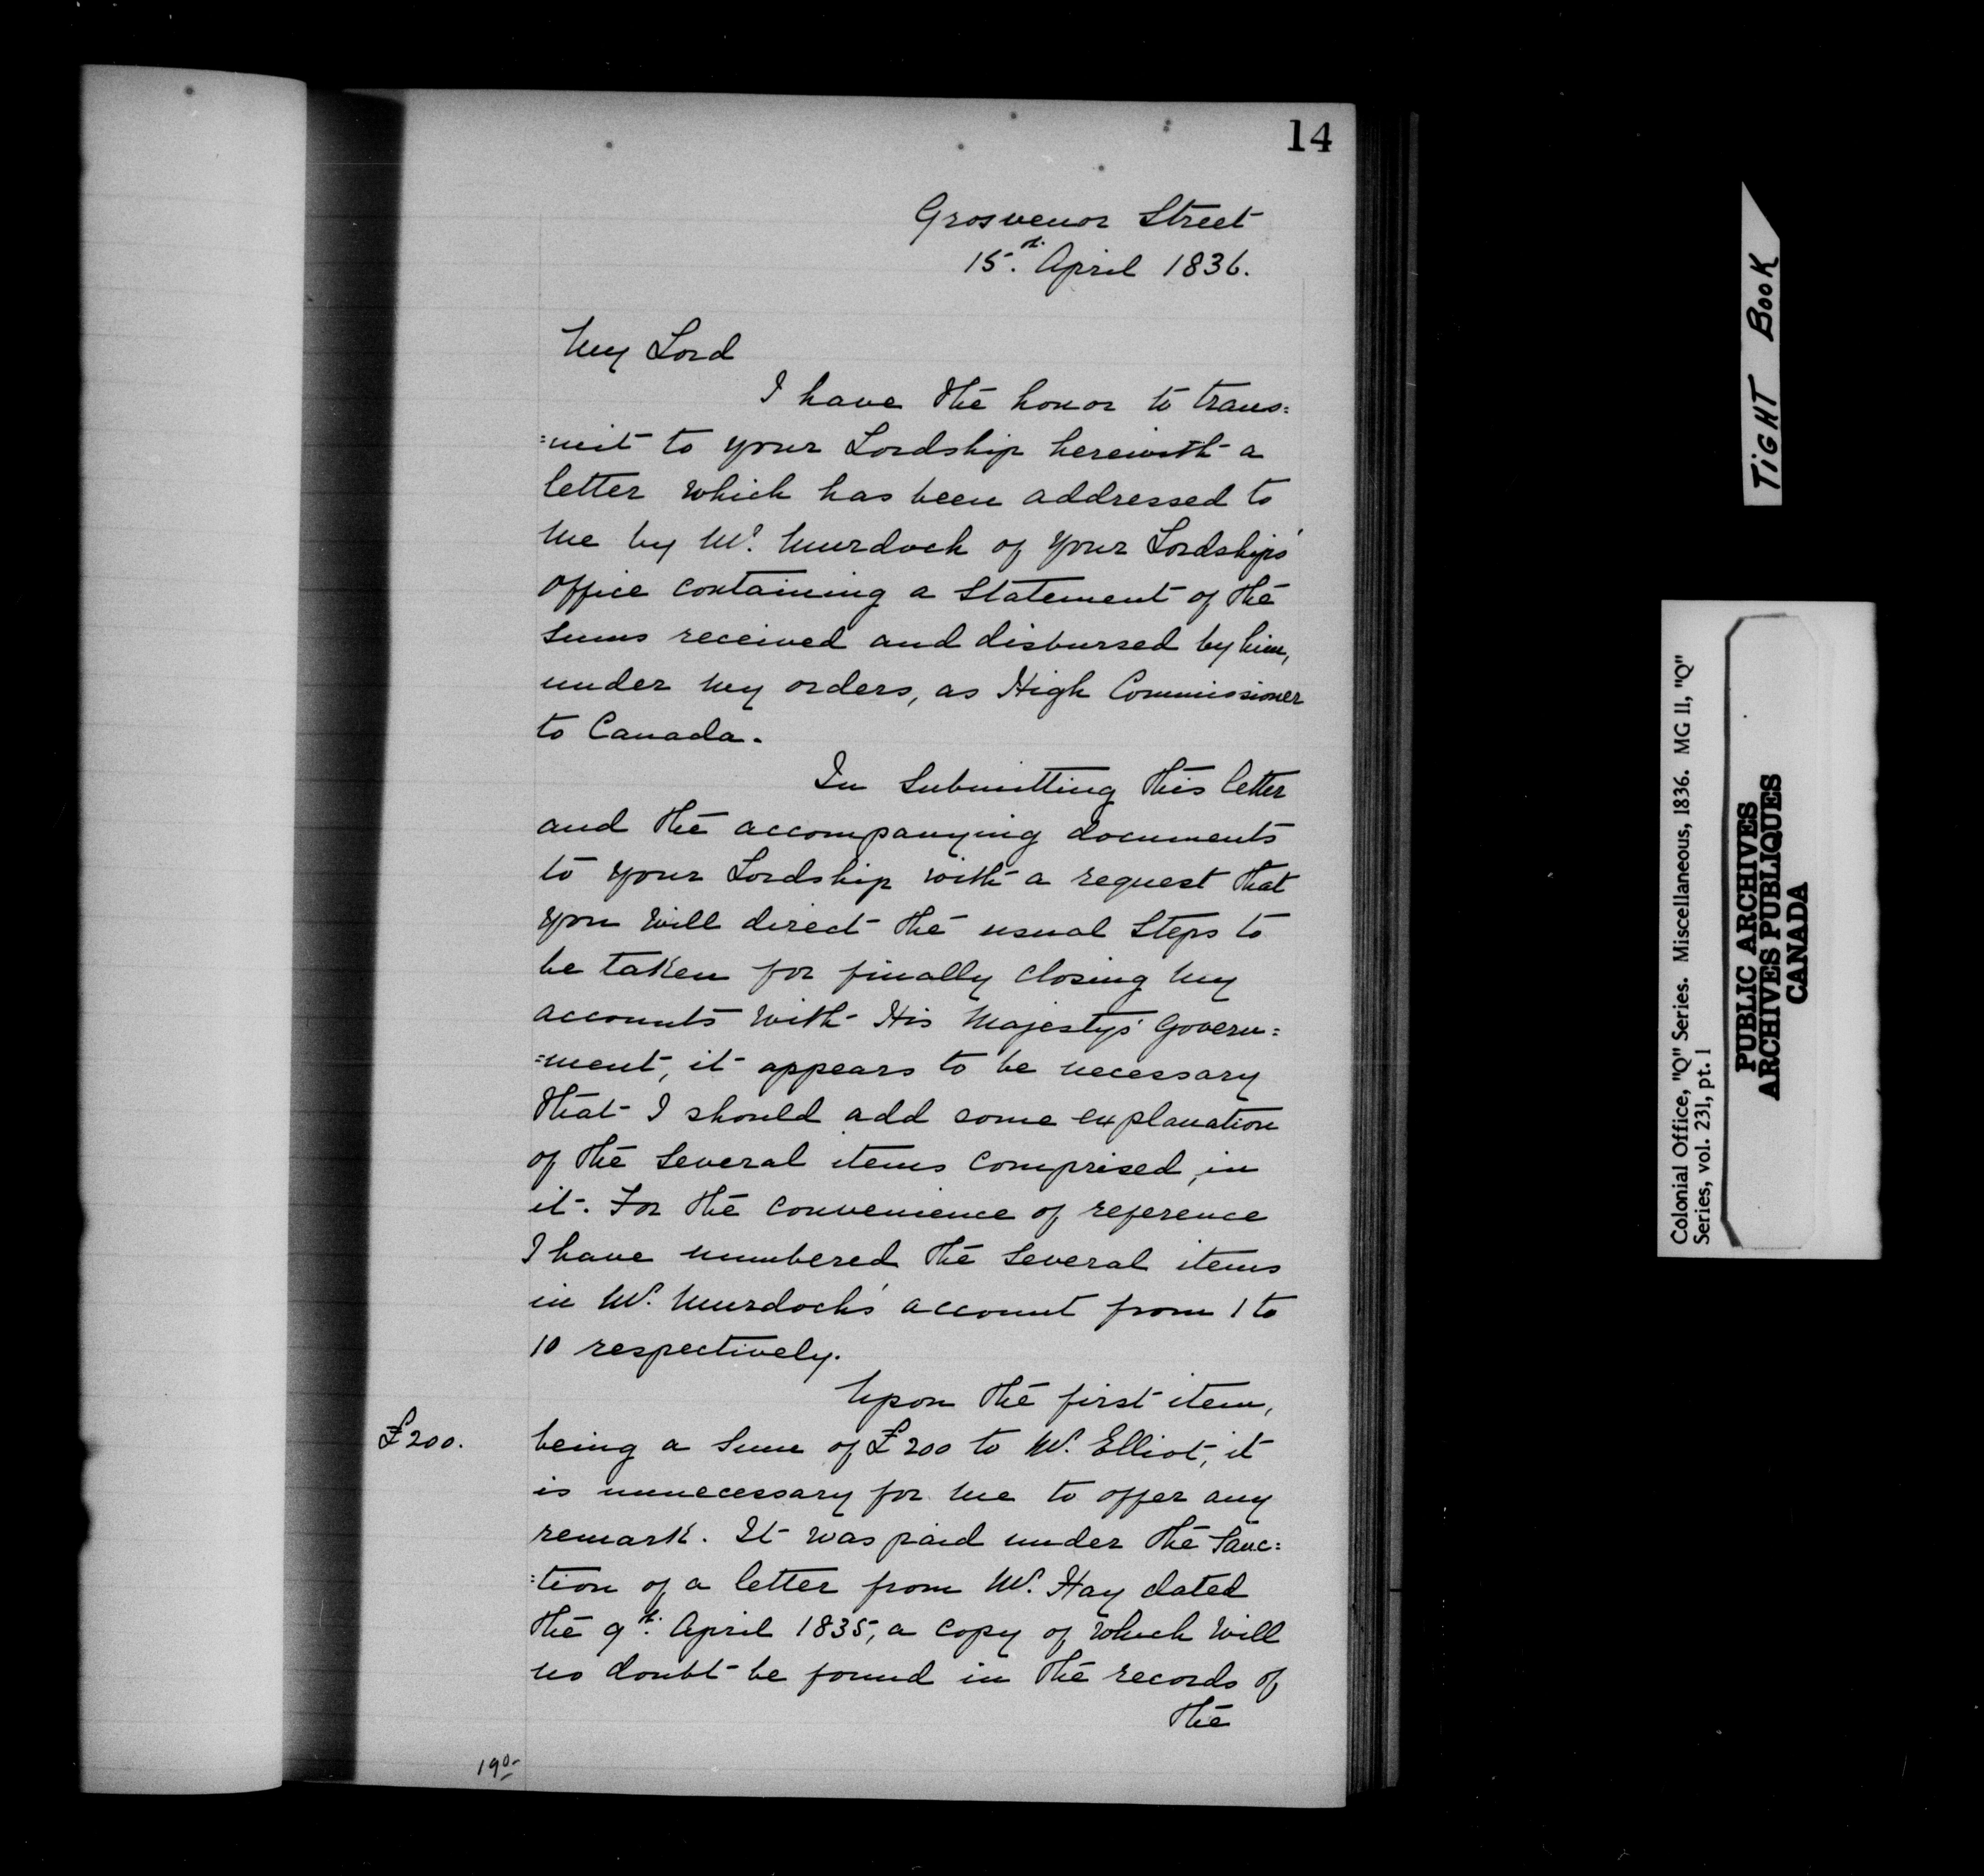 14
Grosvenor Street
15th. April 1836.
My Lord
I have the honor to trans=
=mit to your Lordship herewith a
letter which has been addressed to
me by Mr. Murdoch of your Lordships'
office containing a Statement of the
sums received and disbursed by him,
under my orders, as High Commissioner
to Canada.
In Submitting this letter
and the accompanying documents
to your Lordship with a request that
you will direct the usual Steps to
be taken for finally closing my
accounts with His Majestys' Govern=
=ment, it appears to be necessary
that I should add some explanation
of the several items comprised, in
it. For the convenience of reference
I have numbered the several items
in Mr. Murdoch's account from 1 to
10 respectively.
Upon the first item,
£200. being a Sum of £200 to Mr. Elliot, it
is unnecessary for me to offer any
remark. It was paid under the Sanc=
=tion of a letter from Mr. Hay dated
the 9th. April 1835, a copy of which will
no doubt be found in the records of
the
TIGHT BOOK
Colonial Office, "Q" Series. Miscellaneous, 1836. MG 11, "Q"
Series, vol. 231, pt. 1
PUBLIC ARCHIVES
ARCHIVES PUBLIQUES
CANADA